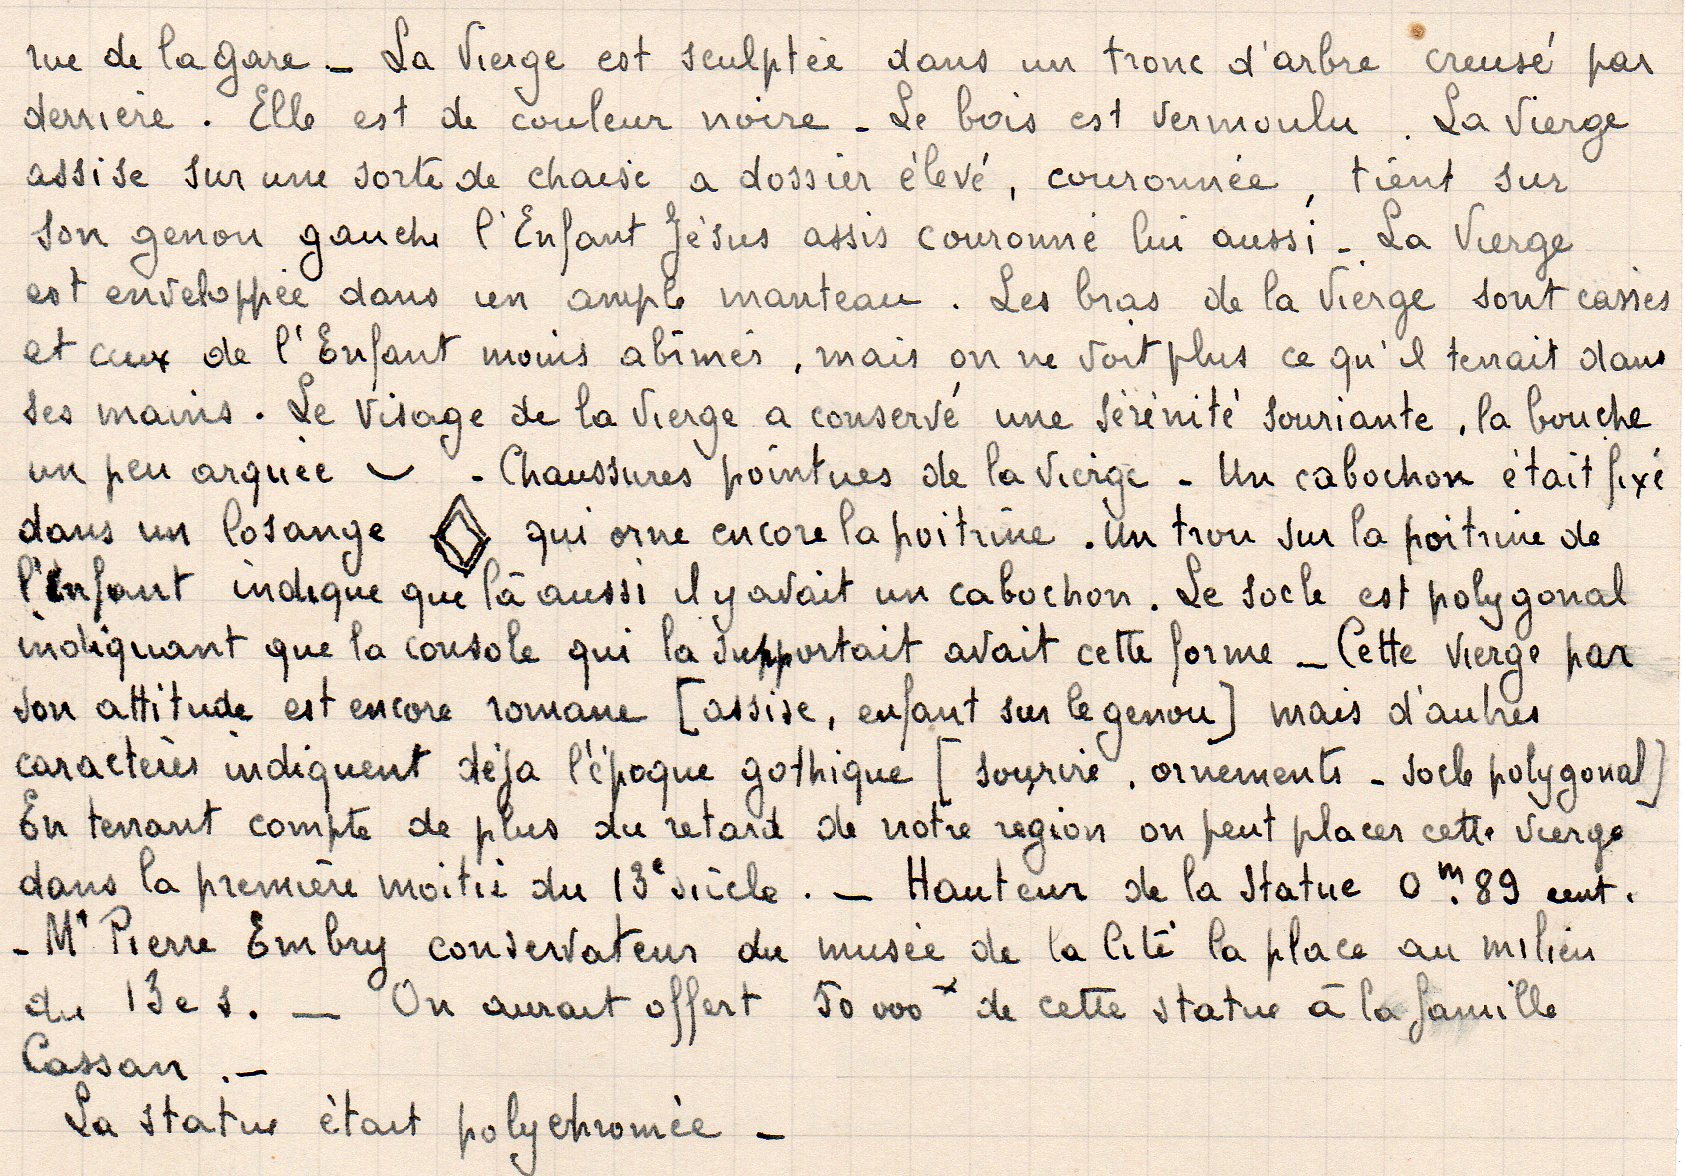 rue de la gare _ La Vierge est sculptée dans un tronc d'arbre creusé par
derrière . Elle est de couleur noire _ Le bois est vermoulu . La Vierge
assise sur une sorte de chaise a dossier élevé, couronnée, tient sur
son genou gauche l'Enfant Jésus assis couronné lui aussi _ La Vierge
est enveloppée dans un ample manteau . Les bras de la Vierge sont cassés
et ceux de l'Enfant moins abîmés, mais on ne voit plus ce qu'il tenait dans
ses mains . Le visage de la Vierge a conservé une sérénité souriante, la bouche
un peu arquée - Chaussures pointues de la Vierge - Un cabochon était fixé
dans un losange qui orne encore la poitrine . Un trou sur la poitrine de
l'Enfant indique que là aussi il y avait un cabochon . Le socle est polygonal
indiquant que la console qui la supportait avait cette forme _ Cette Vierge par
son attitude est encore romane [assise, enfant sur le genou] mais d'autres
caractères indiquent déja l'époque gothique [sourire, ornements - socle polygonal]
En tenant compte de plus du retard de notre région on peut placer cette vierge
dans la première moitié du 13e siècle . _ Hauteur de la statue 0m.89 cent.
- Mr Pierre Embry conservateur du musée de la Cité la place au milieu
du 13e s. _ On aurait offert 50 000 de cette statue à la famille
Cassan . _
La statue était polychromée _